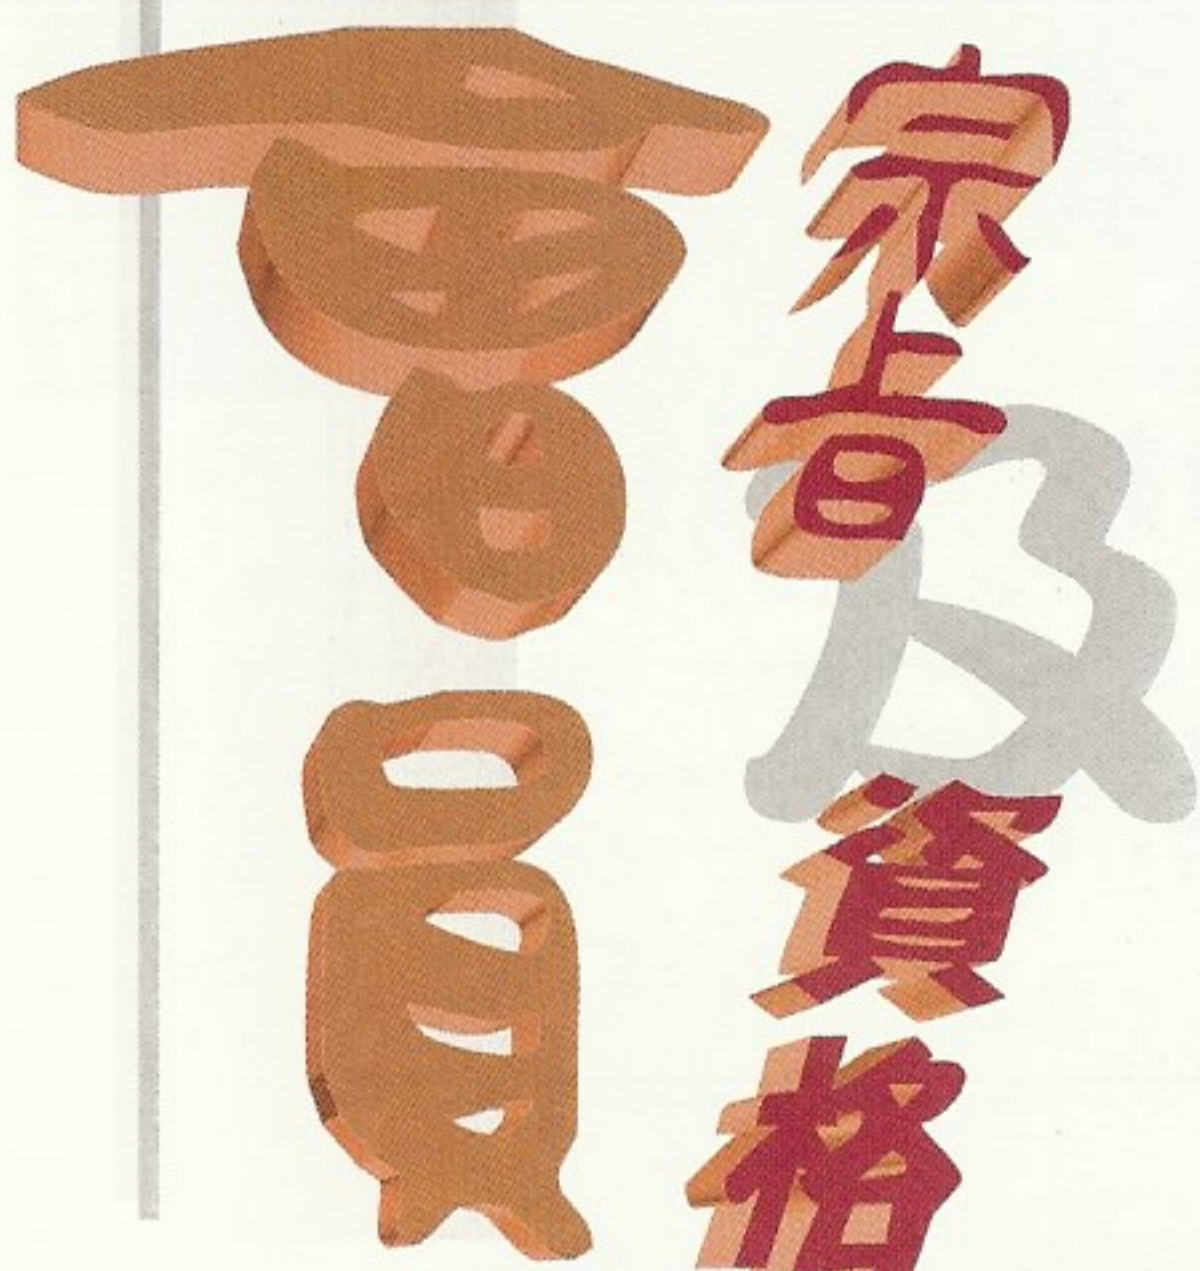 會員
宗旨及資格